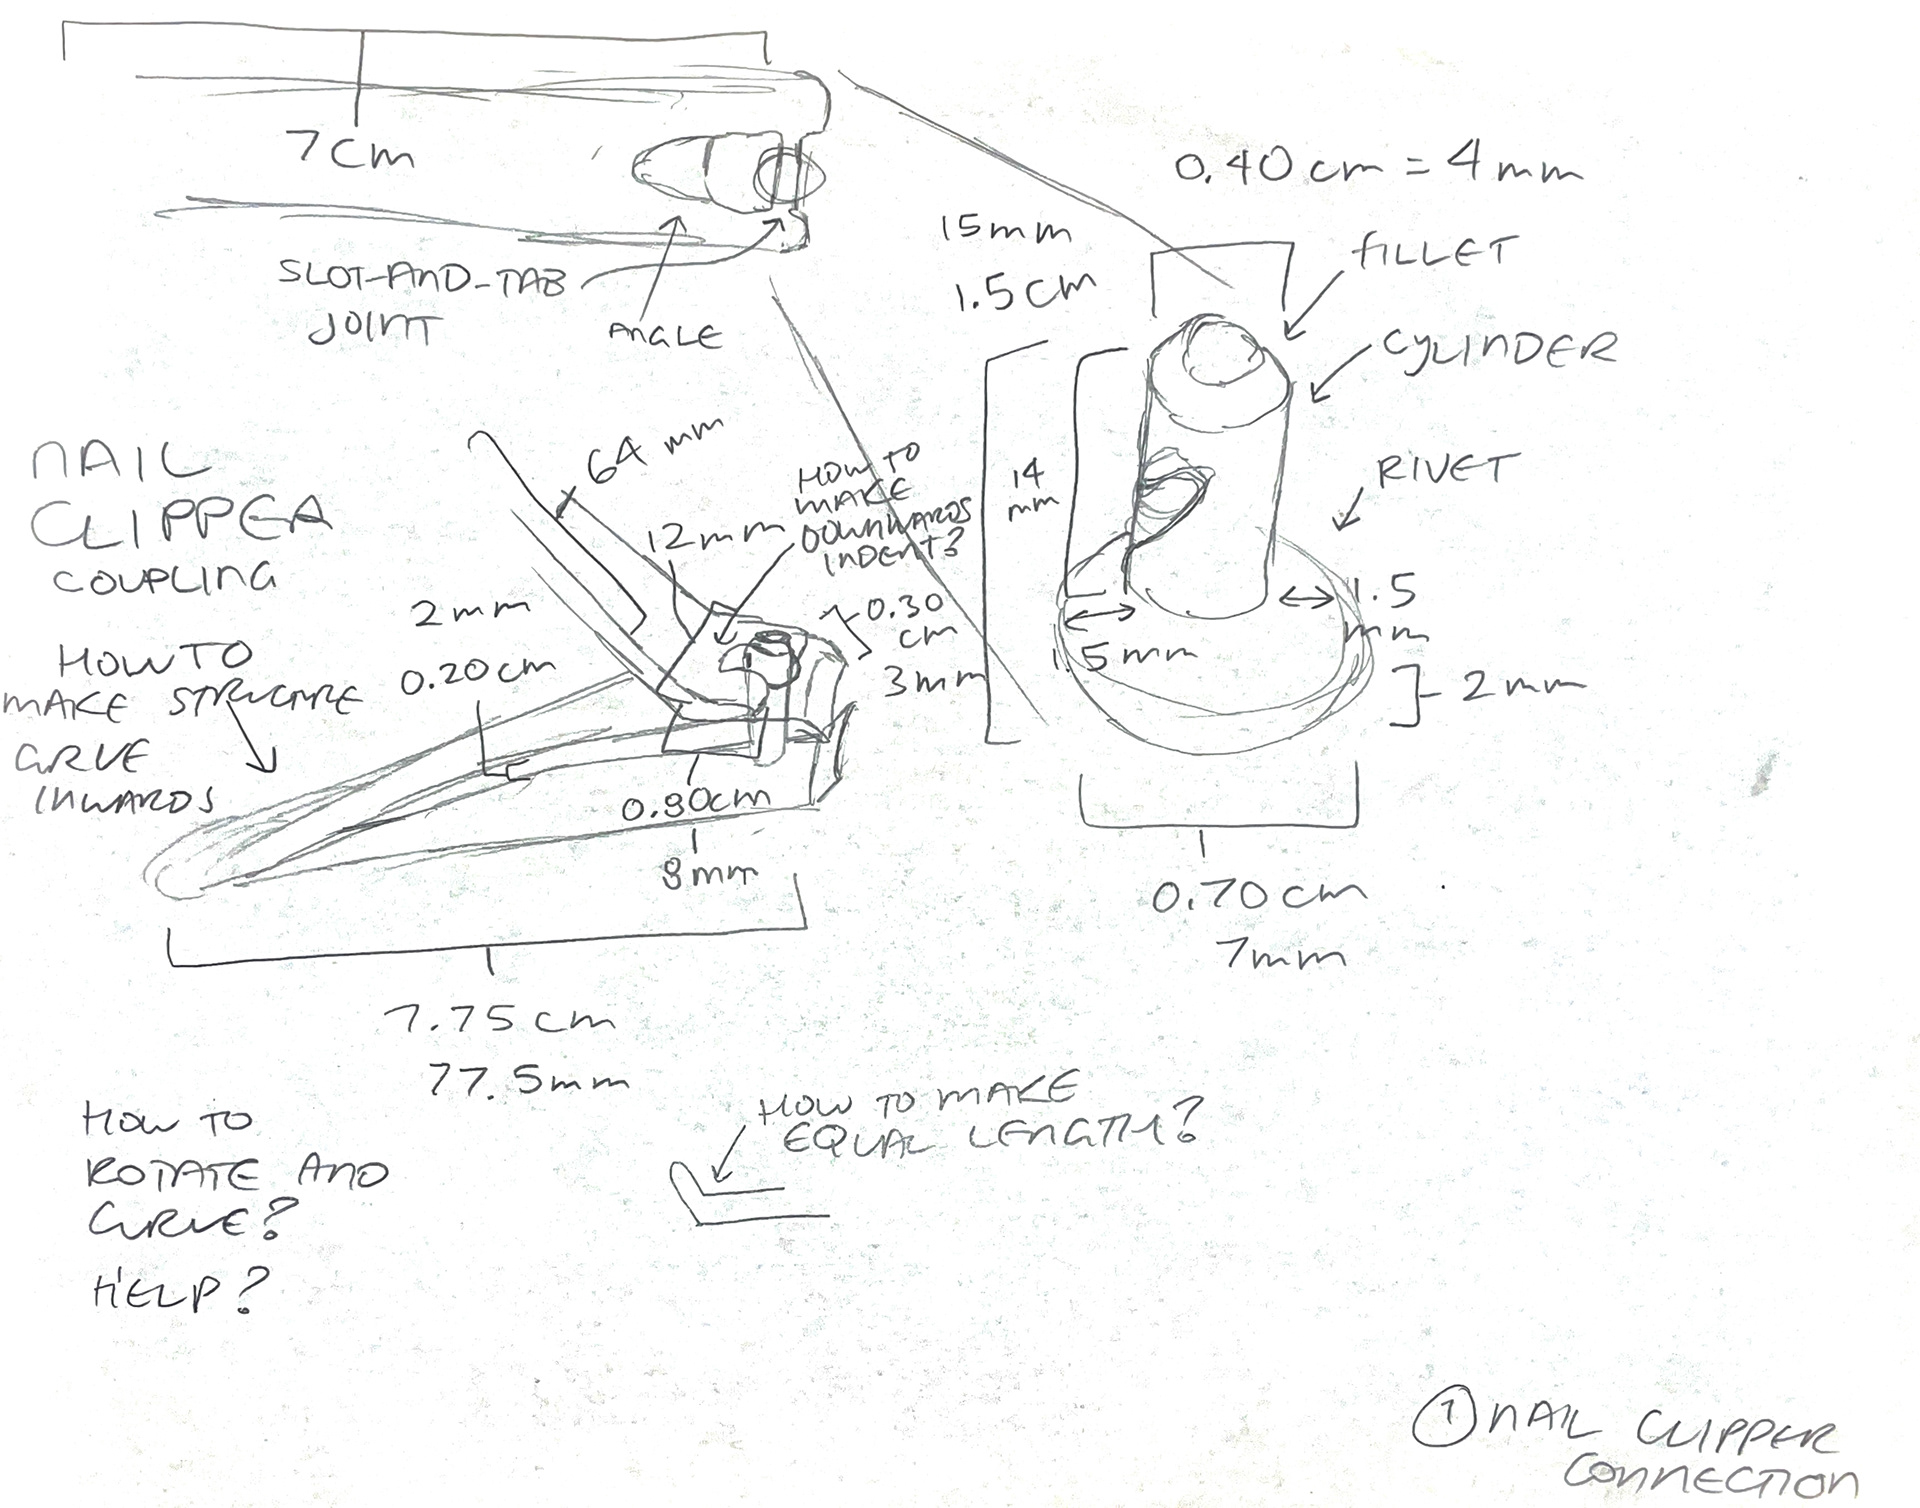 7 cm
0.40 cm = 4 mm
15 mm
1.5 cm
FILLET
SLOT-AND-TAB
JOINT
ANGLE
CYLINDER
64 mm
HOW TO
MAKE
DOWNWARDS
INDENT?
14
mm
RIVET
NAIL
CLIPPER
COUPLING
12 mm
2 mm
0.20 cm
0.30
cm
3 mm
1.5
mm
1.5 mm
2 mm
HOW TO
MAKE STRUCTURE
CURVE
INWARDS
8 mm
0.70 cm
7 mm
7.75 cm
77.5 mm
HOW TO
ROTATE AND
CURVE?
HELP?
HOW TO MAKE
EQUAL LENGTH?
1 NAIL CLIPPER
CONNECTION